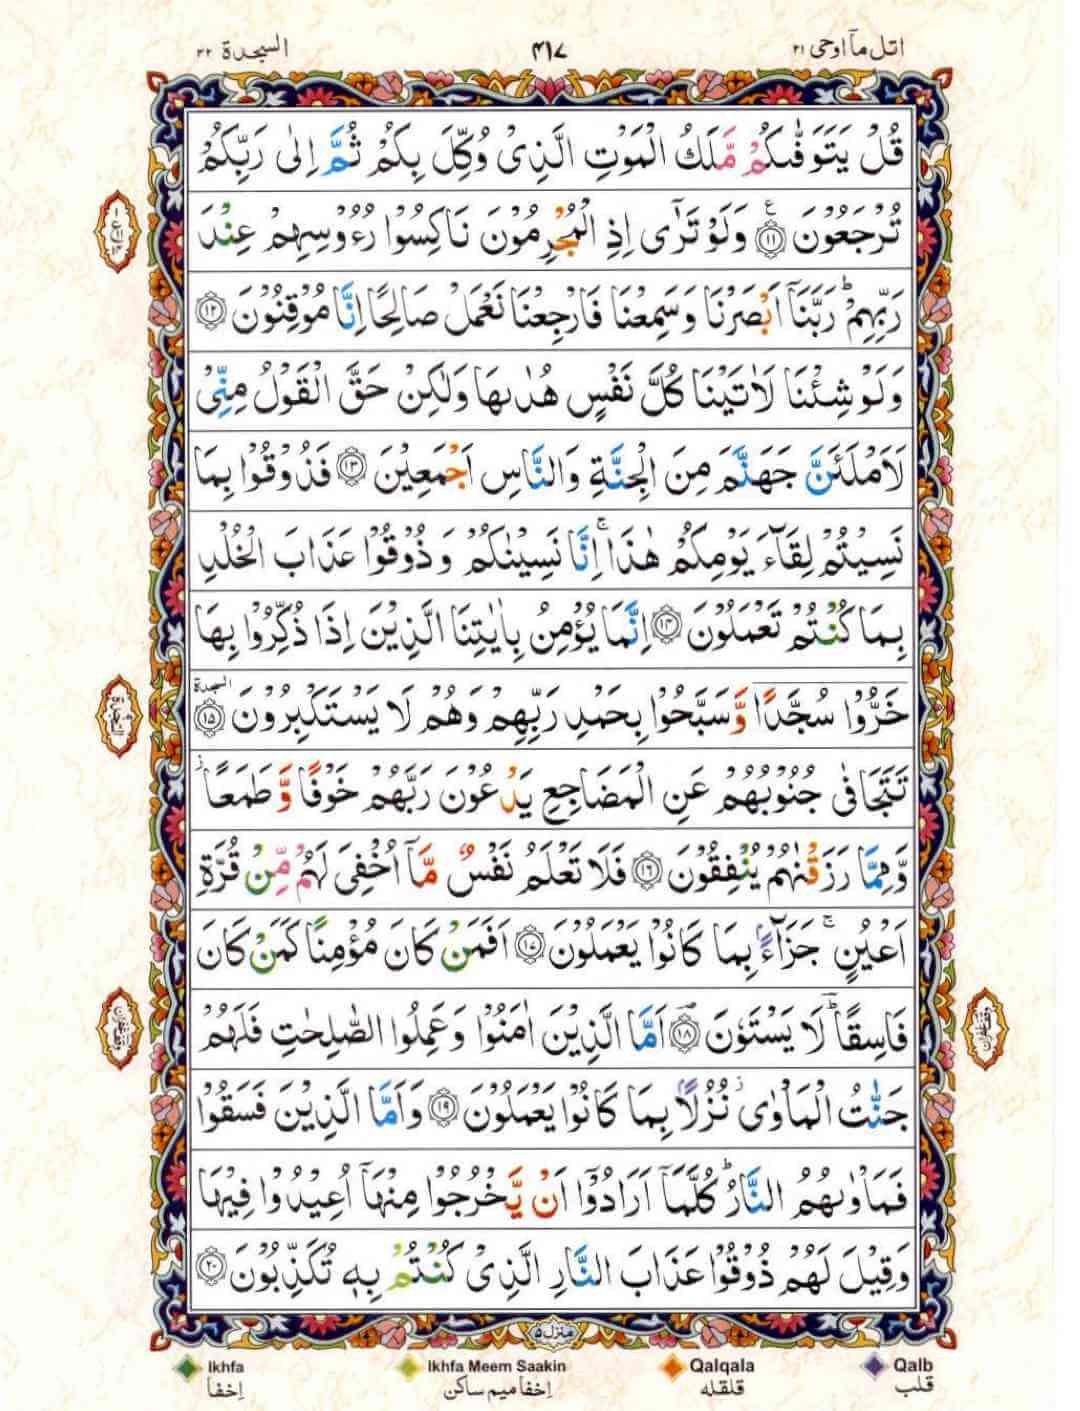 اتل مآ اوحی ۲۱ ۴۱۷ السجدة ۳۲
قُلْ يَتَوَفّٰىكُمْ مَّلَكُ الْمَوْتِ الَّذِيْ وُكِّلَ بِكُمْ ثُمَّ اِلٰى رَبِّكُمْ
تُرْجَعُوْنَ ۝۱۱ ع وَلَوْ تَرٰٓى اِذِ الْمُجْرِمُوْنَ نَاكِسُوْا رُءُوْسِهِمْ عِنْدَ
رَبِّهِمْ ؕ رَبَّنَاۤ اَبْصَرْنَا وَسَمِعْنَا فَارْجِعْنَا نَعْمَلْ صَالِحًا اِنَّا مُوْقِنُوْنَ ۝۱۲
وَلَوْ شِئْنَا لَاٰتَيْنَا كُلَّ نَفْسٍ هُدٰىهَا وَلٰكِنْ حَقَّ الْقَوْلُ مِنِّيْ
لَاَمْلَئَنَّ جَهَنَّمَ مِنَ الْجِنَّةِ وَالنَّاسِ اَجْمَعِيْنَ ۝۱۳ فَذُوْقُوْا بِمَا
نَسِيْتُمْ لِقَآءَ يَوْمِكُمْ هٰذَا ۚ اِنَّا نَسِيْنٰكُمْ وَذُوْقُوْا عَذَابَ الْخُلْدِ
بِمَا كُنْتُمْ تَعْمَلُوْنَ ۝۱۴ اِنَّمَا يُؤْمِنُ بِاٰيٰتِنَا الَّذِيْنَ اِذَا ذُكِّرُوْا بِهَا
خَرُّوْا سُجَّدًا وَّسَبَّحُوْا بِحَمْدِ رَبِّهِمْ وَهُمْ لَا يَسْتَكْبِرُوْنَ ۝۱۵ السجدة
تَتَجَافٰى جُنُوْبُهُمْ عَنِ الْمَضَاجِعِ يَدْعُوْنَ رَبَّهُمْ خَوْفًا وَّطَمَعًا ؗ
وَّمِمَّا رَزَقْنٰهُمْ يُنْفِقُوْنَ ۝۱۶ فَلَا تَعْلَمُ نَفْسٌ مَّاۤ اُخْفِيَ لَهُمْ مِّنْ قُرَّةِ
اَعْيُنٍ ۚ جَزَآءًۢ بِمَا كَانُوْا يَعْمَلُوْنَ ۝۱۷ اَفَمَنْ كَانَ مُؤْمِنًا كَمَنْ كَانَ
فَاسِقًا ؕ لَا يَسْتَوٗنَ ۝۱۸ اَمَّا الَّذِيْنَ اٰمَنُوْا وَعَمِلُوا الصّٰلِحٰتِ فَلَهُمْ
جَنّٰتُ الْمَاْوٰى ؗ نُزُلًاۢ بِمَا كَانُوْا يَعْمَلُوْنَ ۝۱۹ وَاَمَّا الَّذِيْنَ فَسَقُوْا
فَمَاْوٰىهُمُ النَّارُ ؕ كُلَّمَاۤ اَرَادُوْۤا اَنْ يَّخْرُجُوْا مِنْهَاۤ اُعِيْدُوْا فِيْهَا
وَقِيْلَ لَهُمْ ذُوْقُوْا عَذَابَ النَّارِ الَّذِيْ كُنْتُمْ بِهٖ تُكَذِّبُوْنَ ۝۲۰
منزل ۵
Ikhfa Ikhfa Meem Saakin Qalqala Qalb
اِخفا اِخفا میم ساکن قلقله قلب